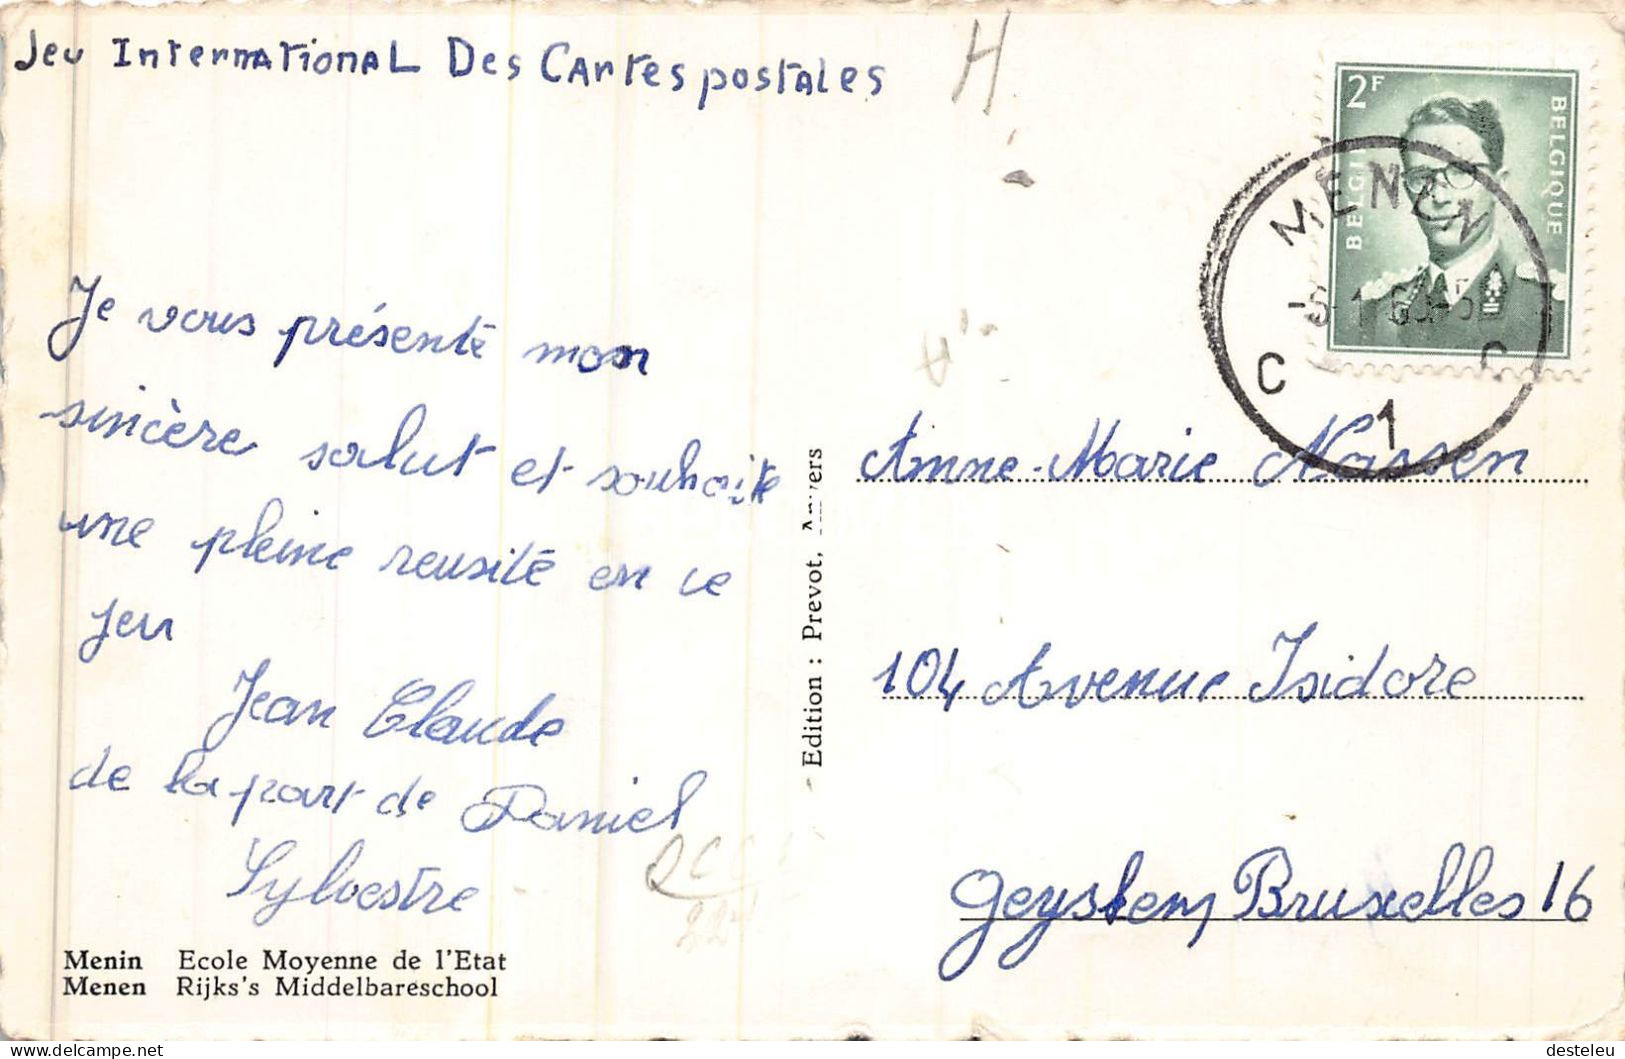 Jeu International Des Cartes postales
H
2F
BELGIË
BELGIQUE
MENEN
C C
1
Je vous présente mon
sincère salut et souhaite
une pleine reusité en ce
jeu
Jean Claude
de la part de Daniel
Sylvestre
Menin Ecole Moyenne de l'Etat
Menen Rijks's Middelbareschool
Edition : Prevot, Anvers
Anne-Marie Nassen
104 Avenue Isidore
Geystem Bruxelles 16
desteleu